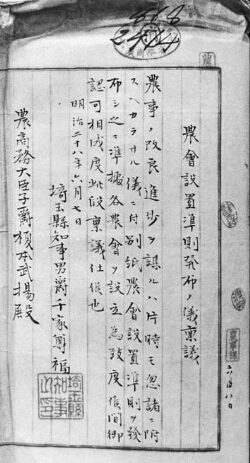 農會設置準則發布ノ儀稟議
農事ノ改良進歩ヲ謀ルハ片時モ忽諸ニ附
スヘカラサル儀ニ付別紙農會設置準則ヲ發
布シ之ニ準據各農會ヲ設立為致度候間御
認可相成度此段稟議仕候也
明治二十八年六月七日
埼玉縣知事男爵千家尊福
埼玉縣知事之印
農商務大臣子爵榎本武揚殿
六月八日